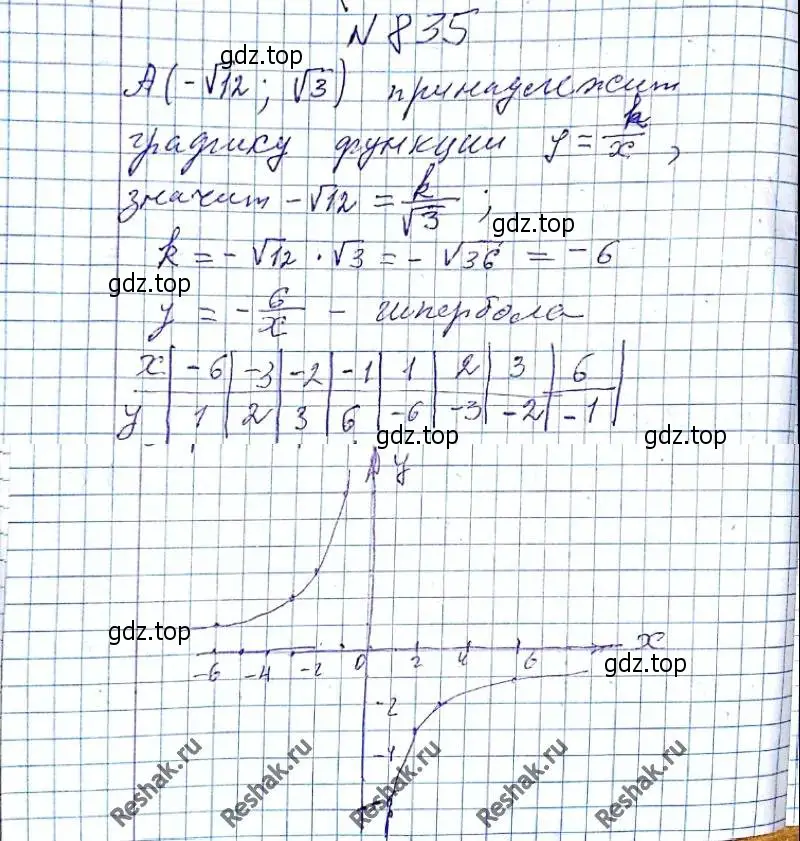 N 835
A(-√12; √3) принадлежит
графику функции y = k/x,
значит -√12 = k/√3;
k = -√12 · √3 = -√36 = -6
y = -6/x - гипербола
x | -6 | -3 | -2 | -1 | 1 | 2 | 3 | 6
y | 1 | 2 | 3 | 6 | -6 | -3 | -2 | -1
y
-6 -4 -2 0 2 4 6 x
-2
-4
gdz.top
gdz.top
gdz.top
gdz.top
gdz.top
gdz.top
gdz.top
Reshak.ru
Reshak.ru
Reshak.ru
Reshak.ru
Reshak.ru
Reshak.ru